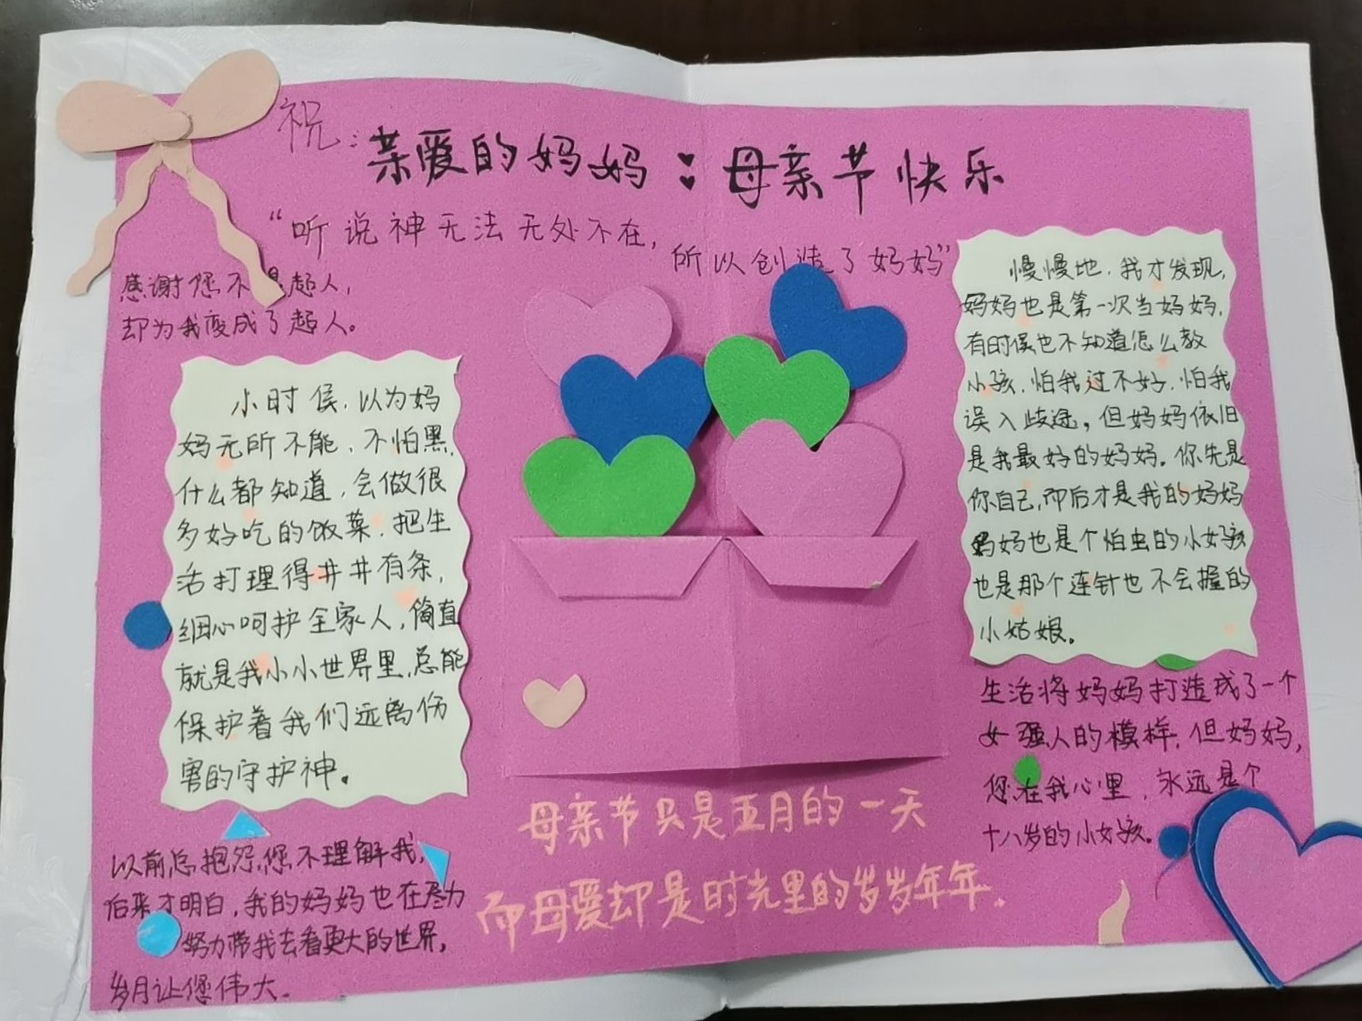 祝:亲爱的妈妈:母亲节快乐
“听说神无法无处不在,
所以创造了妈妈”
感谢您不是超人,
却为我变成了超人。
小时候,以为妈
妈无所不能,不怕黑,
什么都知道,会做很
多好吃的饭菜,把生
活打理得井井有条,
细心呵护全家人,简直
就是我小小世界里,总能
保护着我们远离伤
害的守护神。
以前总抱怨,您不理解我,
后来才明白,我的妈妈也在尽力
努力带我去看更大的世界,
岁月让您伟大。
慢慢地,我才发现,
妈妈也是第一次当妈妈,
有时候也不知道怎么教
小孩,怕我过不好,怕我
误入歧途,但妈妈依旧
是我最好的妈妈。你先是
你自己,而后才是我的妈妈
妈妈也是个怕虫的小女孩
也是那个连针也不会握的
小姑娘。
生活将妈妈打造成了一个
女强人的模样,但妈妈,
您在我心里,永远是个
十八岁的小女孩。
母亲节只是五月的一天
而母爱却是时光里的岁岁年年。